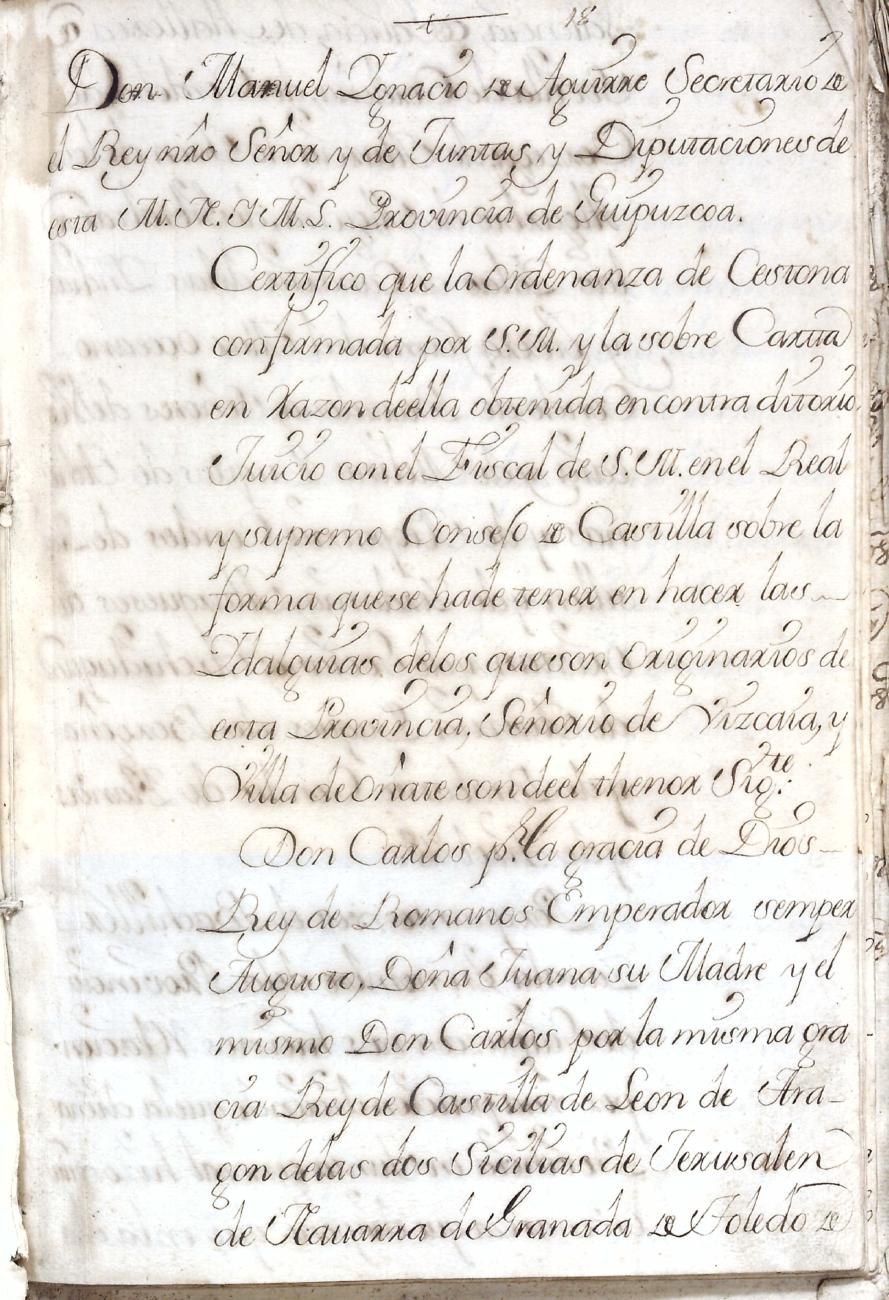 18
Don Manuel Ygnacio de Aguirre Secretario de
el Rey nro Señor y de Juntas, y Diputaciones de
esta M. N. Y M. L. Provincia de Guipuzcoa.
Certifico que la ordenanza de Cestona
confirmada por S. M. y la sobre Carta
en Razon deella obtenida en contra dittorio
Juicio con el Fiscal de S. M. en el Real
y supremo Consejo de Castilla sobre la
forma que se hade tener en hacer las
Ydalguias delos que son originarios de
esta Provincia, Señorio de Vizcaia, y
Villa de oñate son deel thenor Sigte.
Don Carlos pr. la gracia de Dios
Rey de Romanos Emperador semper
Augusto, Doña Juana su Madre y el
mismo Don Carlos por la misma gra
cia Rey de Castilla de Leon de Ara-
gon delas dos Sicilias de Jerusalen
de Nauarra de Granada de Toledo de